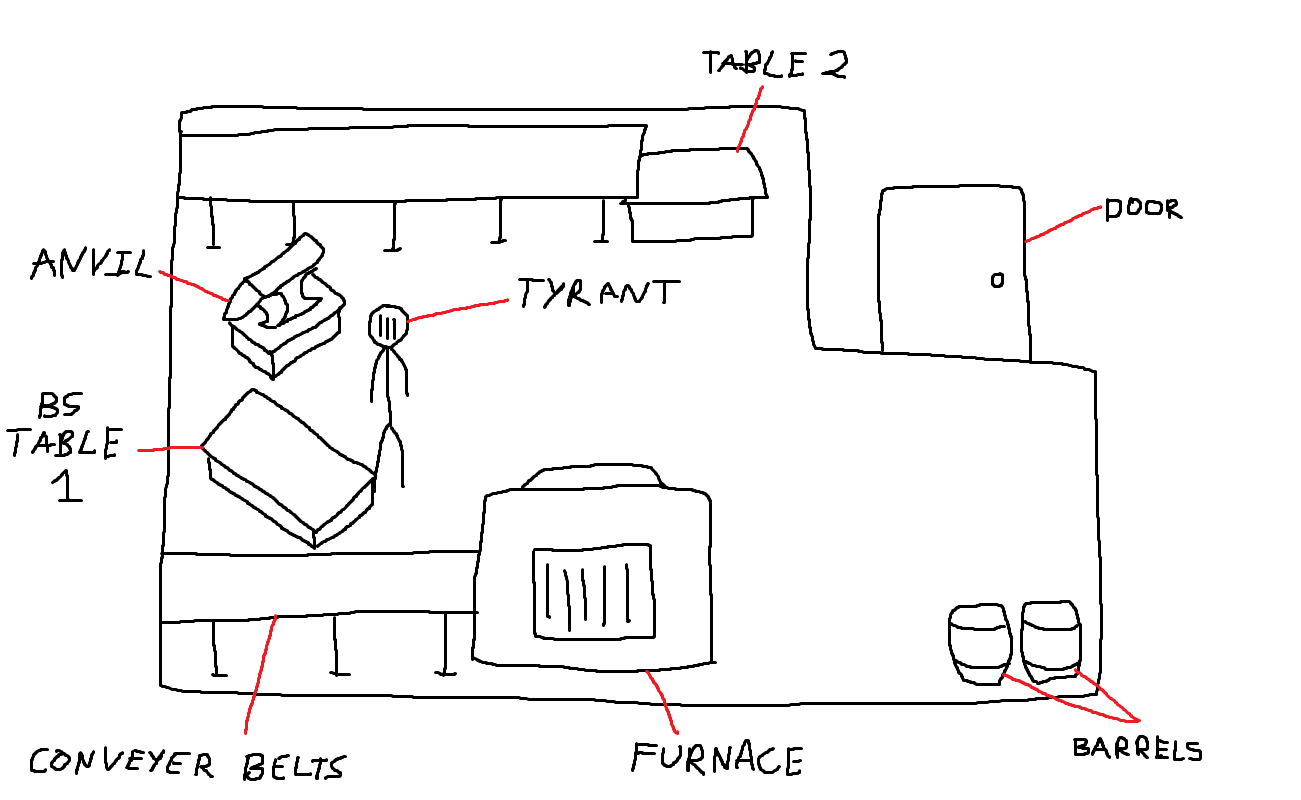 TABLE 2
DOOR
ANVIL
TYRANT
BS
TABLE
1
CONVEYER BELTS
FURNACE
BARRELS